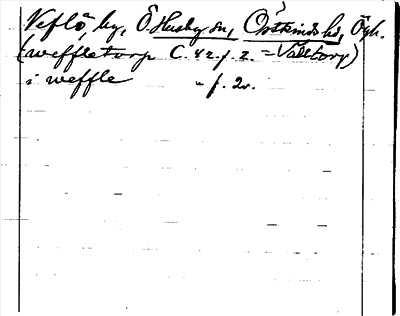 Veflö, by, Ö. Husby sn, Östkinds hd, Ögl.
(weffletorp C. 42. f. 2. = Valltorp)
i weffle " f. 2v.